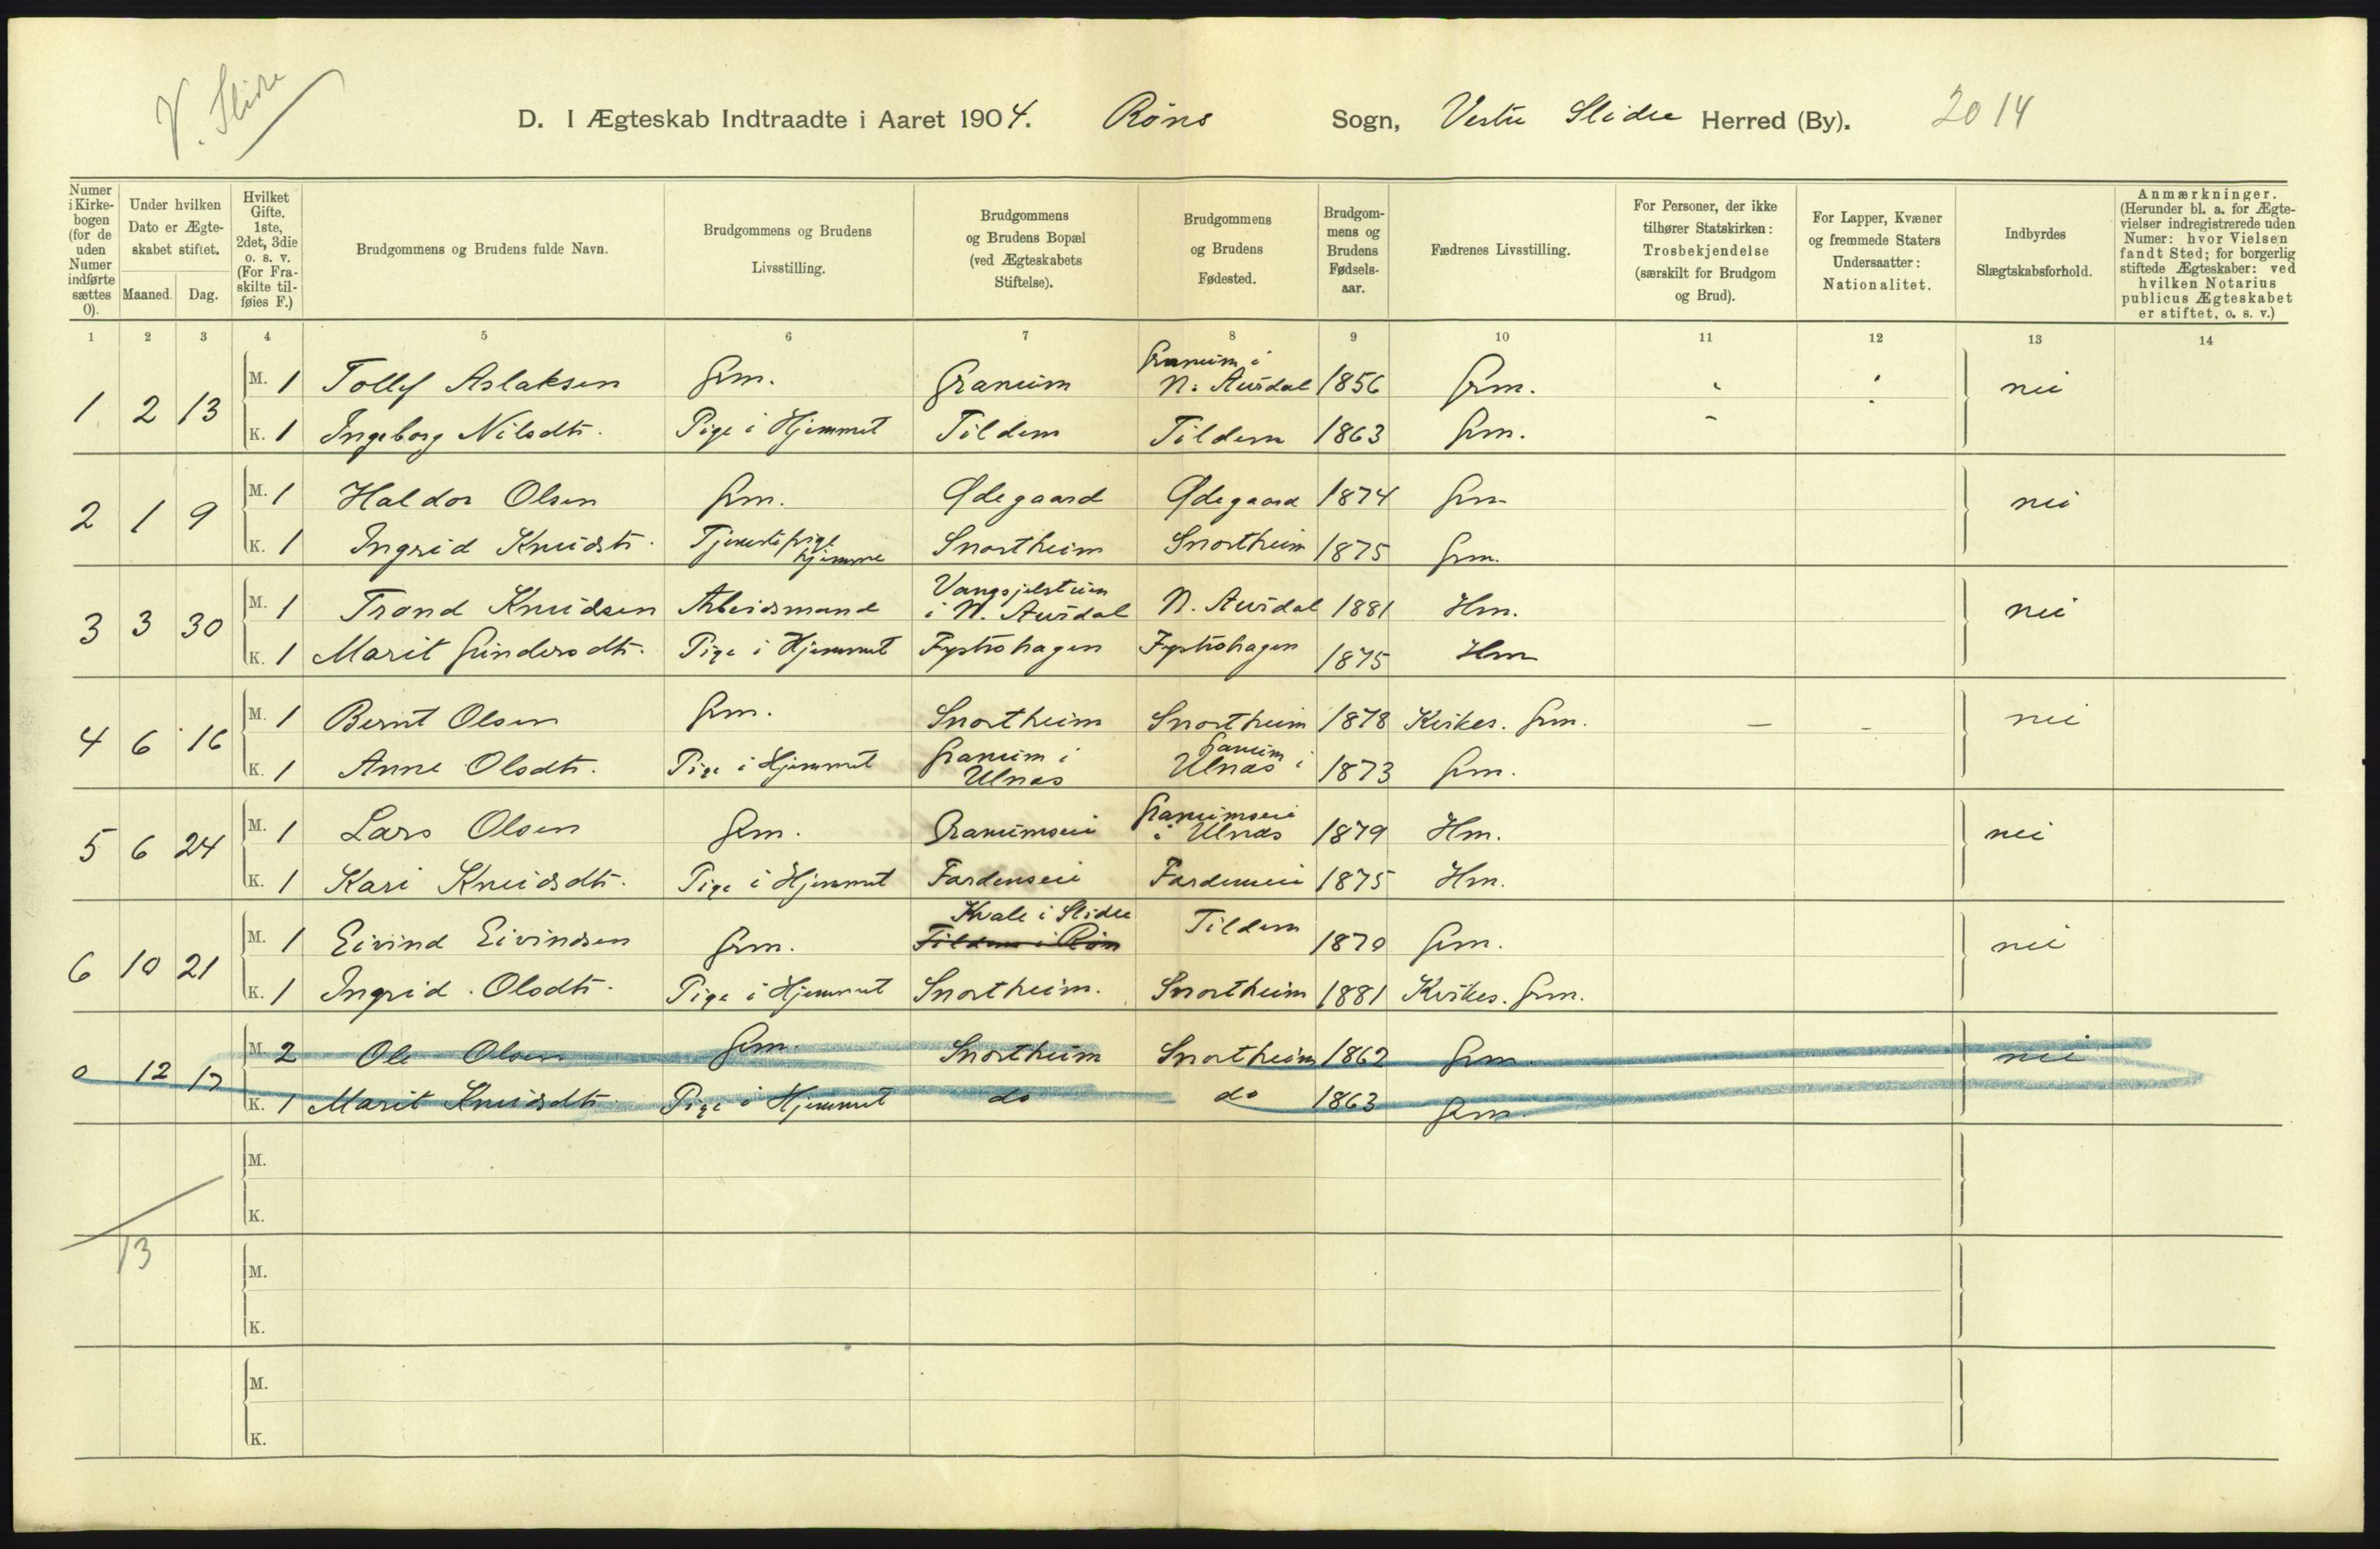 V. Slidre
D. I Ægteskab Indtraadte i Aaret 1904. Røns Sogn, Vestre Slidre Herred (By). 2014
Numer i Kirke-bogen (for de uden Numer indførte sættes 0).
Under hvilken Dato er Ægte-skabet stiftet.
Maaned. Dag.
Hvilket Gifte. 1ste, 2det, 3die o. s. v. (For Fra-skilte til-føies F.)
Brudgommens og Brudens fulde Navn.
Brudgommens og Brudens Livsstilling.
Brudgommens og Brudens Bopæl (ved Ægteskabets Stiftelse).
Brudgommens og Brudens Fødested.
Brudgom-mens og Brudens Fødsels-aar.
Fædrenes Livsstilling.
For Personer, der ikke tilhører Statskirken: Trosbekjendelse (særskilt for Brudgom og Brud).
For Lapper, Kvæner og fremmede Staters Undersaatter: Nationalitet.
Indbyrdes Slægtskabsforhold.
Anmærkninger. (Herunder bl. a. for Ægte-vielser indregistrerede uden Numer: hvor Vielsen fandt Sted; for borgerlig stiftede Ægteskaber: ved hvilken Notarius publicus Ægteskabet er stiftet, o. s. v.)
1 2 3 4 5 6 7 8 9 10 11 12 13 14
1 2 13 M. 1 Tollef Aslaksen Grm. Granum Granum i N. Aurdal 1856 Grm. nei
K. 1 Ingeborg Nilsdtr. Pige i Hjemmet Tildem Tildem 1863 Grm.
2 1 9 M. 1 Haldor Olsen Grm. Ødegaard Ødegaard 1874 Grm nei
K. 1 Ingrid Knudsdtr. Tjenestepige hjemme Snortheim Snortheim 1875 Grm.
3 3 30 M. 1 Trond Knudsen Arbeidsmand i N. Aurdal N. Aurdal 1881 Hm. nei
K. 1 Marit Gundersdtr. Pige i Hjemmet Fystrohagen Fystrohagen 1875 Hm
4 6 16 M. 1 Bernt Olsen Grm. Snortheim Snortheim 1878 Kirkes. Grm. – – nei
K. 1 Anne Olsdtr. Pige i Hjemmet Granum i Ulnæs Granum i Ulnæs 1873 Grm.
5 6 24 M. 1 Lars Olsen Grm. Granumseie Granumseie i Ulnæs 1879 Hm. nei
K. 1 Kari Knudsdtr. Pige i Hjemmet Fardenseie Fardenseie 1875 Hm.
6 10 21 M. 1 Eivind Eivindsen Grm. Kvale i Slidre Tildem i Røn Tildem 1870 Grm. nei
K. 1 Ingrid Olsdtr. Pige i Hjemmet Snortheim. Snortheim 1881 Kirkes. Grm.
0 12 17 M. 2 Ole Olsen Grm. Snortheim Snortheim 1862 Grm nei
K. 1 Marit Knudsdtr. Pige i Hjemmet do do 1863 Grm.
M.
K.
13
M.
K.
M.
K.